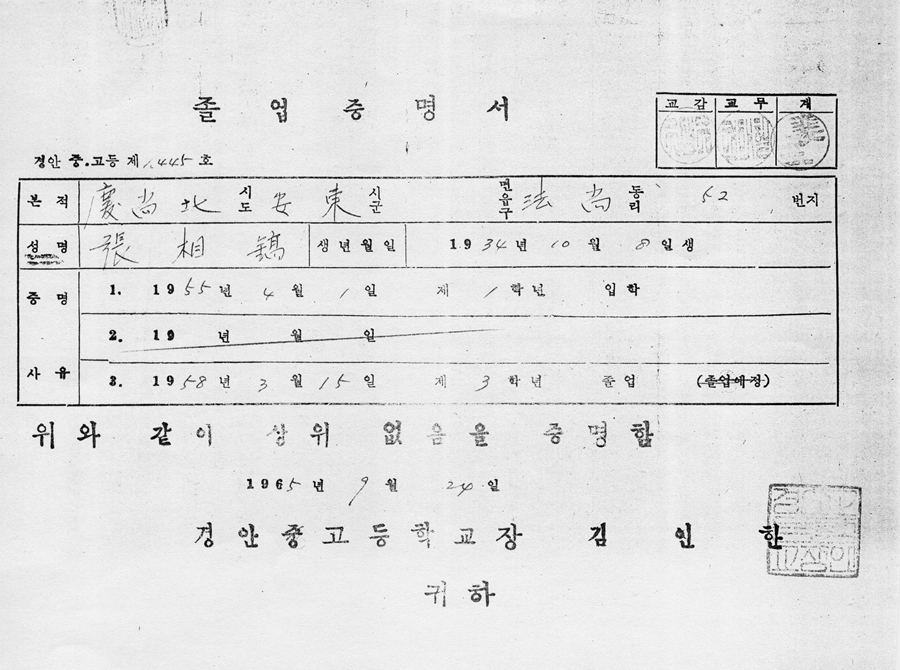 졸업증명서
교감 교무 계
경안 중.고등 제 1,445 호
본적 慶尚北 시도 安東 시군 면읍구 法尚 동리 52 번지
성명 張相鎬 생년월일 1934년 10월 8일생
증명사유
1. 1955년 4월 1일 제 1학년 입학
2. 19 년 월 일
3. 1958년 3월 15일 제 3학년 졸업 (졸업예정)
위와 같이 상위 없음을 증명함
1965년 9월 24일
경안중고등학교장 김인한
귀하